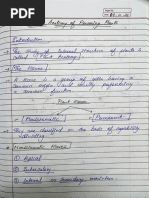 Anatomy of Flowering Plants
Introduction
→ The study of internal structure of plants is
called Plant Anatomy
→ The Tissues
→ A tissue is a group of cells having a
common origin and usually performing
a common function.
Plant tissue
Meristematic Permanent
→ They are classified on the basis of capability
→ Meristematic tissue
① Apical
② Intercalary
③ Lateral